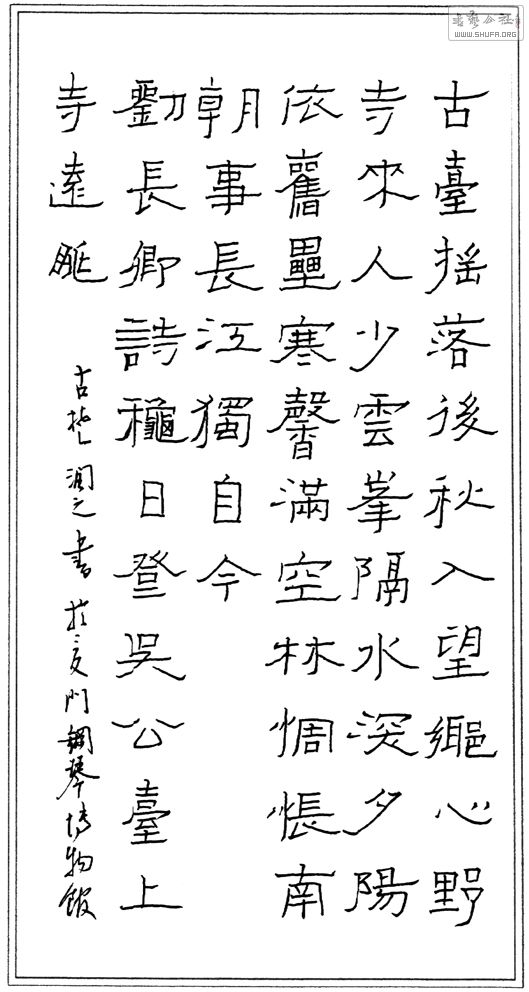 古臺摇落後秋入望鄉心野
寺來人少雲峯隔水深夕陽
依舊壘寒馨滿空林惆悵南
朝事長江獨自今
劉長卿詩穐日登吳公臺上
寺遠眺
古楚潤之書於廈門鋼琴博物館
WWW.SHUFA.ORG